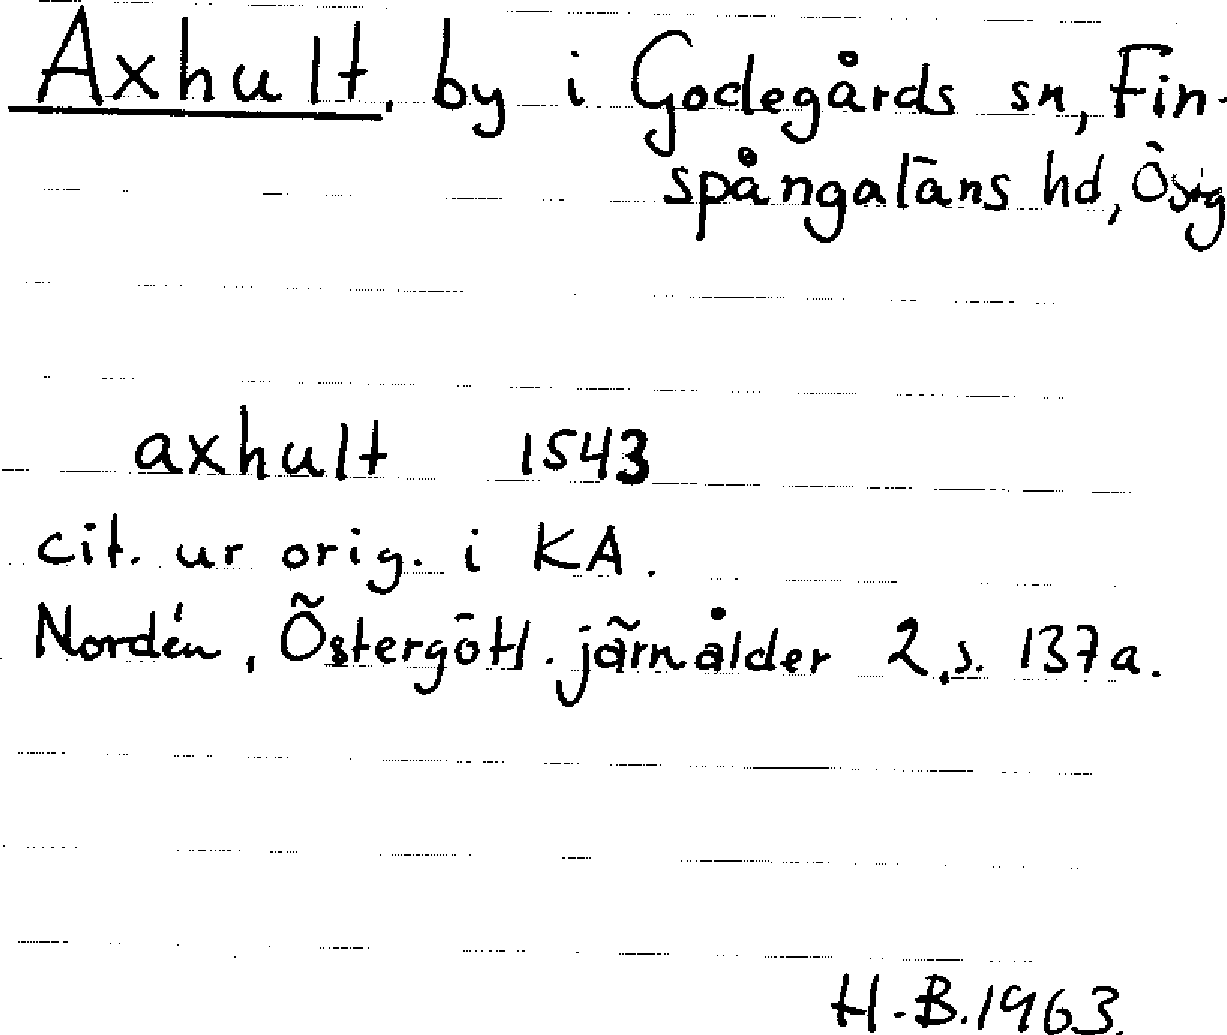 Axhult, by i Godegårds sn, Fin-
spångaläns hd, Östg
axhult 1543
cit. ur orig. i KA.
Nordén, Östergötl. järnålder 2, s. 137a.
H.B. 1963.